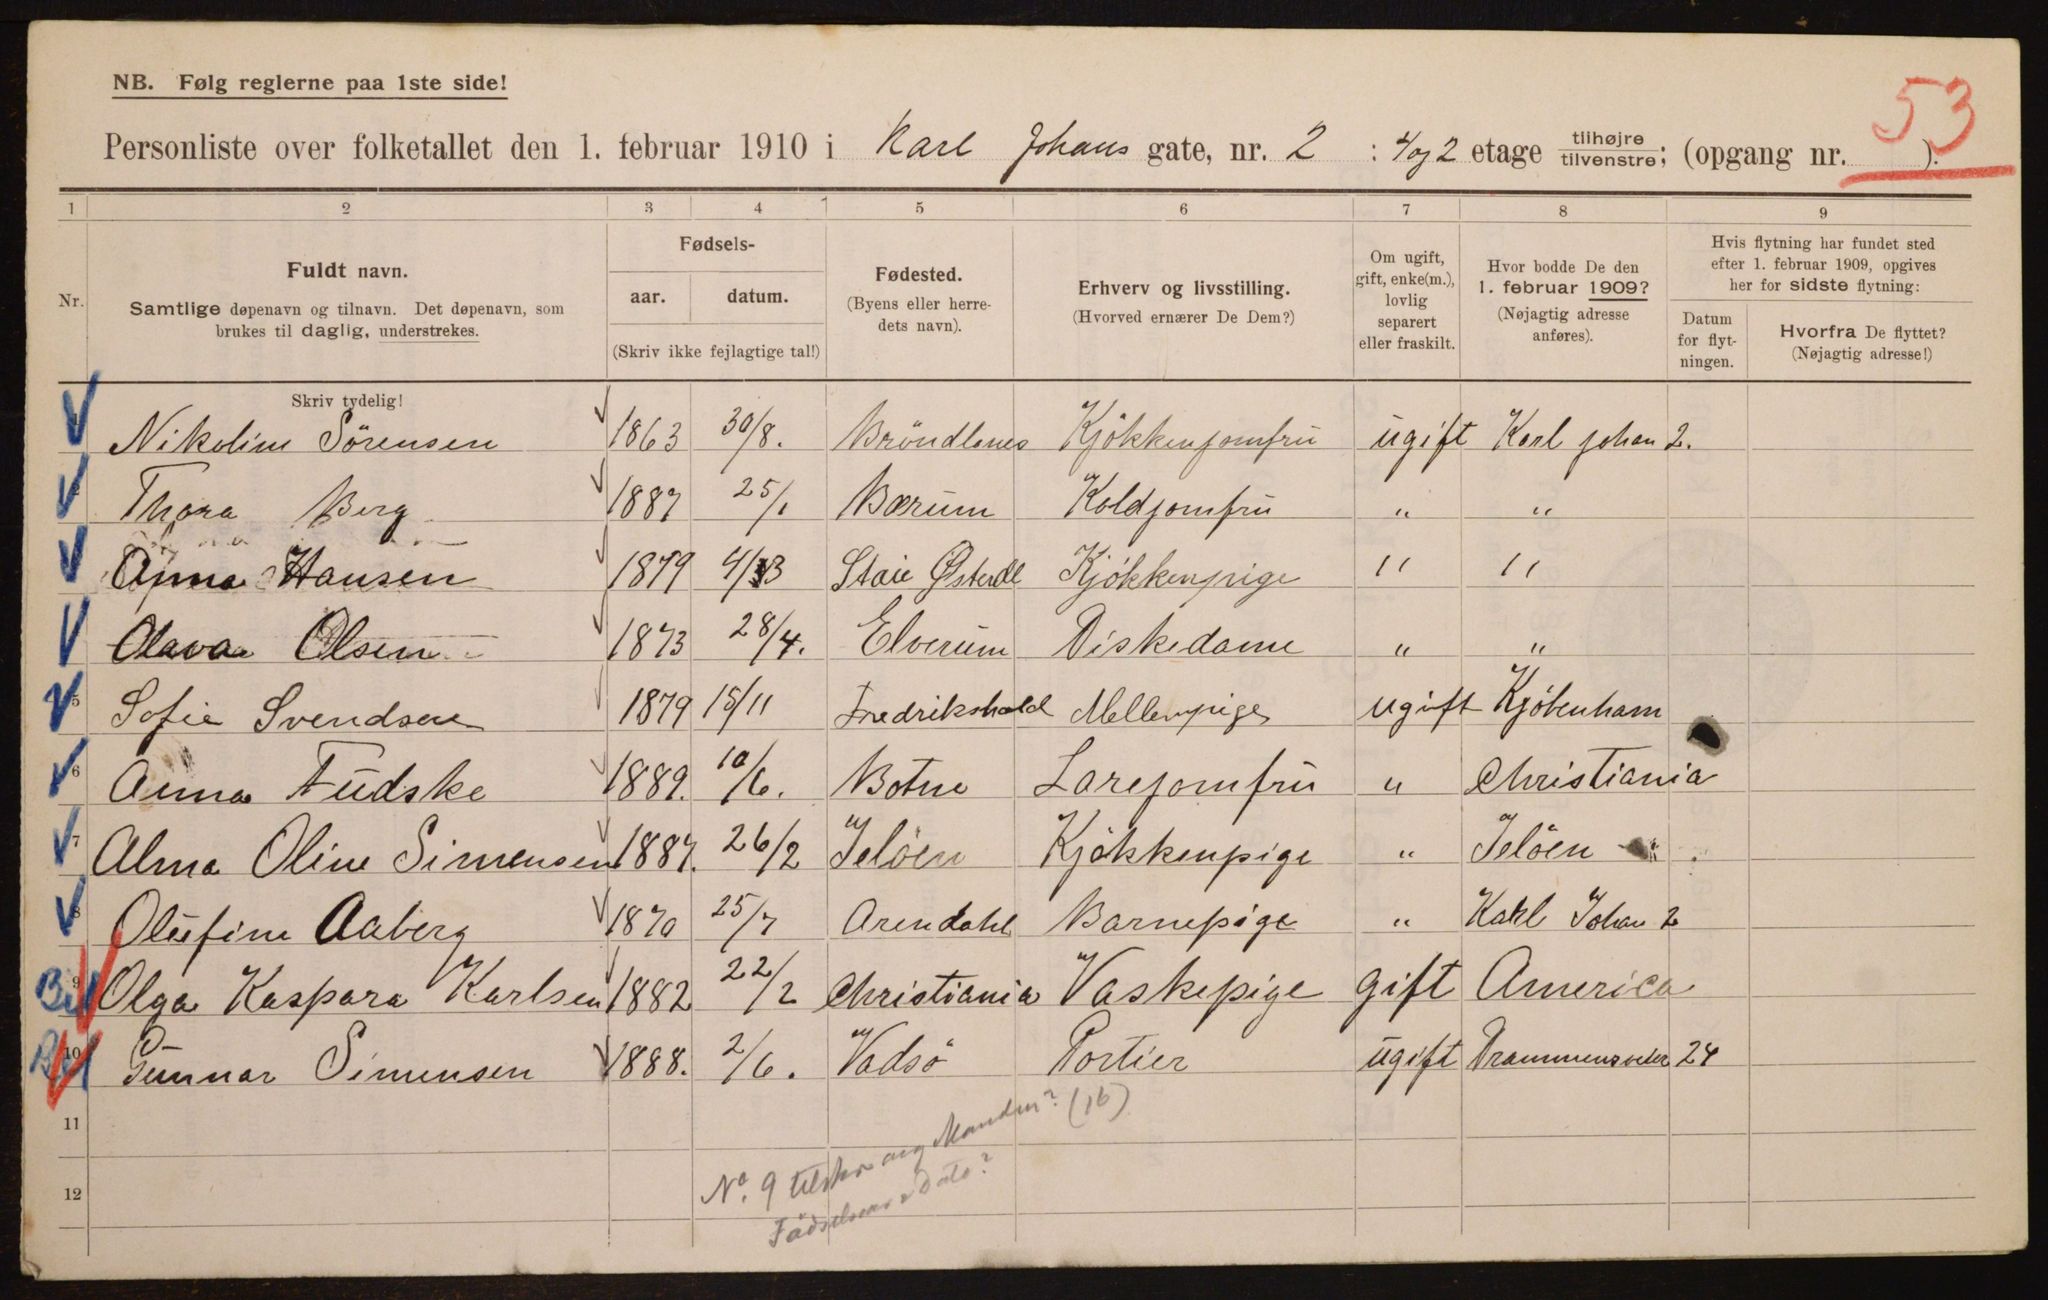 NB. Følg reglerne paa 1ste side!
53
Personliste over folketallet den 1. februar 1910 i Karl Johans gate, nr. 2 : 4 og 2 etage tilhøjre/tilvenstre; (opgang nr. ).
1 2 3 4 5 6 7 8 9
Nr.
Fuldt navn.
Samtlige døpenavn og tilnavn. Det døpenavn, som
brukes til daglig, understrekes.
Fødsels-
aar. datum.
(Skriv ikke fejlagtige tal!)
Fødested.
(Byens eller herre-
dets navn).
Erhverv og livsstilling.
(Hvorved ernærer De Dem?)
Om ugift,
gift, enke(m.),
lovlig
separert
eller fraskilt.
Hvor bodde De den
1. februar 1909?
(Nøjagtig adresse
anføres).
Hvis flytning har fundet sted
efter 1. februar 1909, opgives
her for sidste flytning:
Datum
for flyt-
ningen.
Hvorfra De flyttet?
(Nøjagtig adresse!)
Skriv tydelig!
Nikoline Sörensen 1863 30/8. Bröndlones Kjökkenjomfru ugift Karl Johan 2.
Thora Berg 1887 25/1 Bærum Koldjomfru " "
Anna Hansen 1879 4/3 Staie Østerdl Kjökkenpige " "
Olava Olsen 1873 28/4. Elverum Diskedame " "
5 Sofie Svendsen 1879 15/11 Fredrikshald Mellempige ugift Kjöbenham
6 Anna Fudske 1889. 10/6. Botne Larejomfru " Christiania
7 Alma Oline Simensen 1887. 26/2 Jelöen Kjökkenpige " Jelöen
8 Olufine Aaberg 1870 25/7 Arendahl Barnepige " Karl Johan 2
9 Olga Kaspara Karlsen 1882 22/2 Christiania Vaskepige gift America
10 Gunnar Simensen 1888. 2/6. Vadsö Portier ugift Drammensveien 24
11
12
No. 9 Manden? (16)
Födselsaar & Dato?